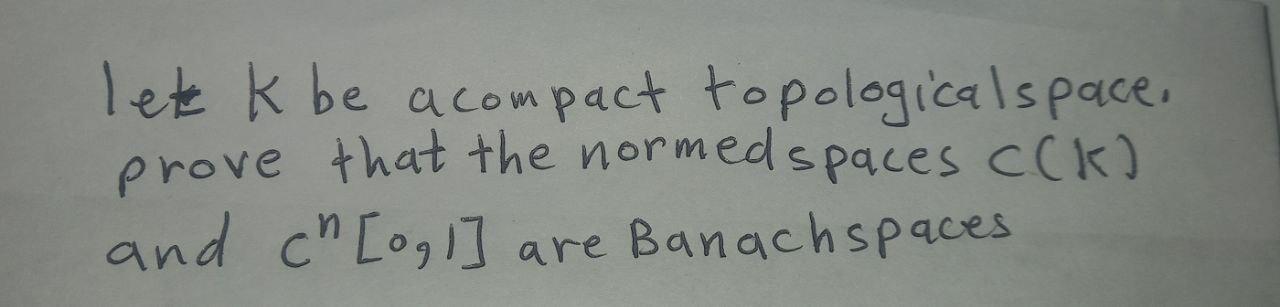 let k be a compact topological space.
prove that the normed spaces C(K)
and cⁿ[0,1] are Banach spaces